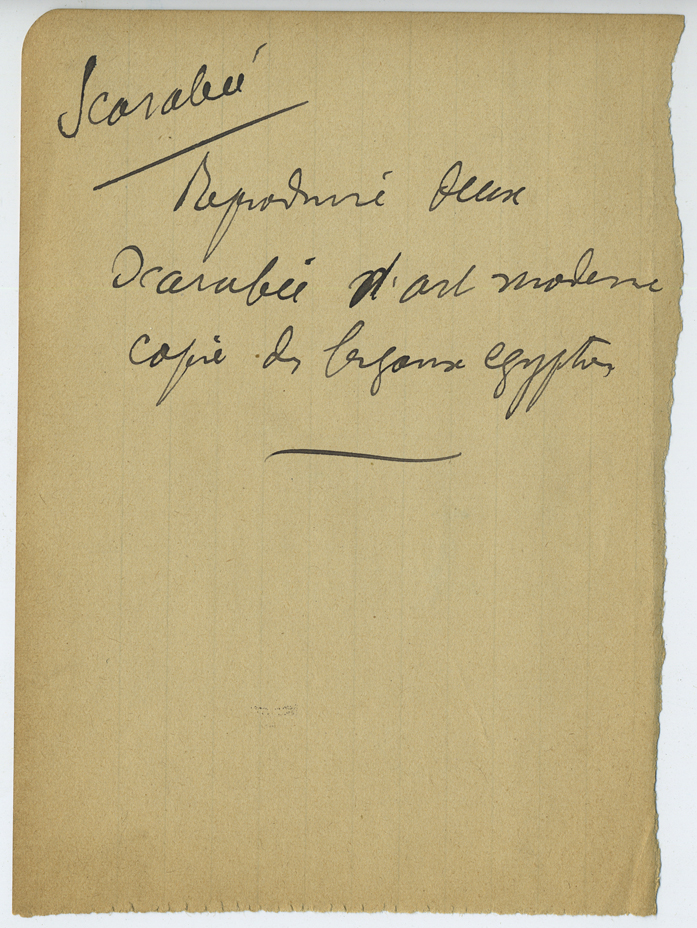 Scarabée
Reproduire deux
Scarabée d'art moderne
copie de egypte